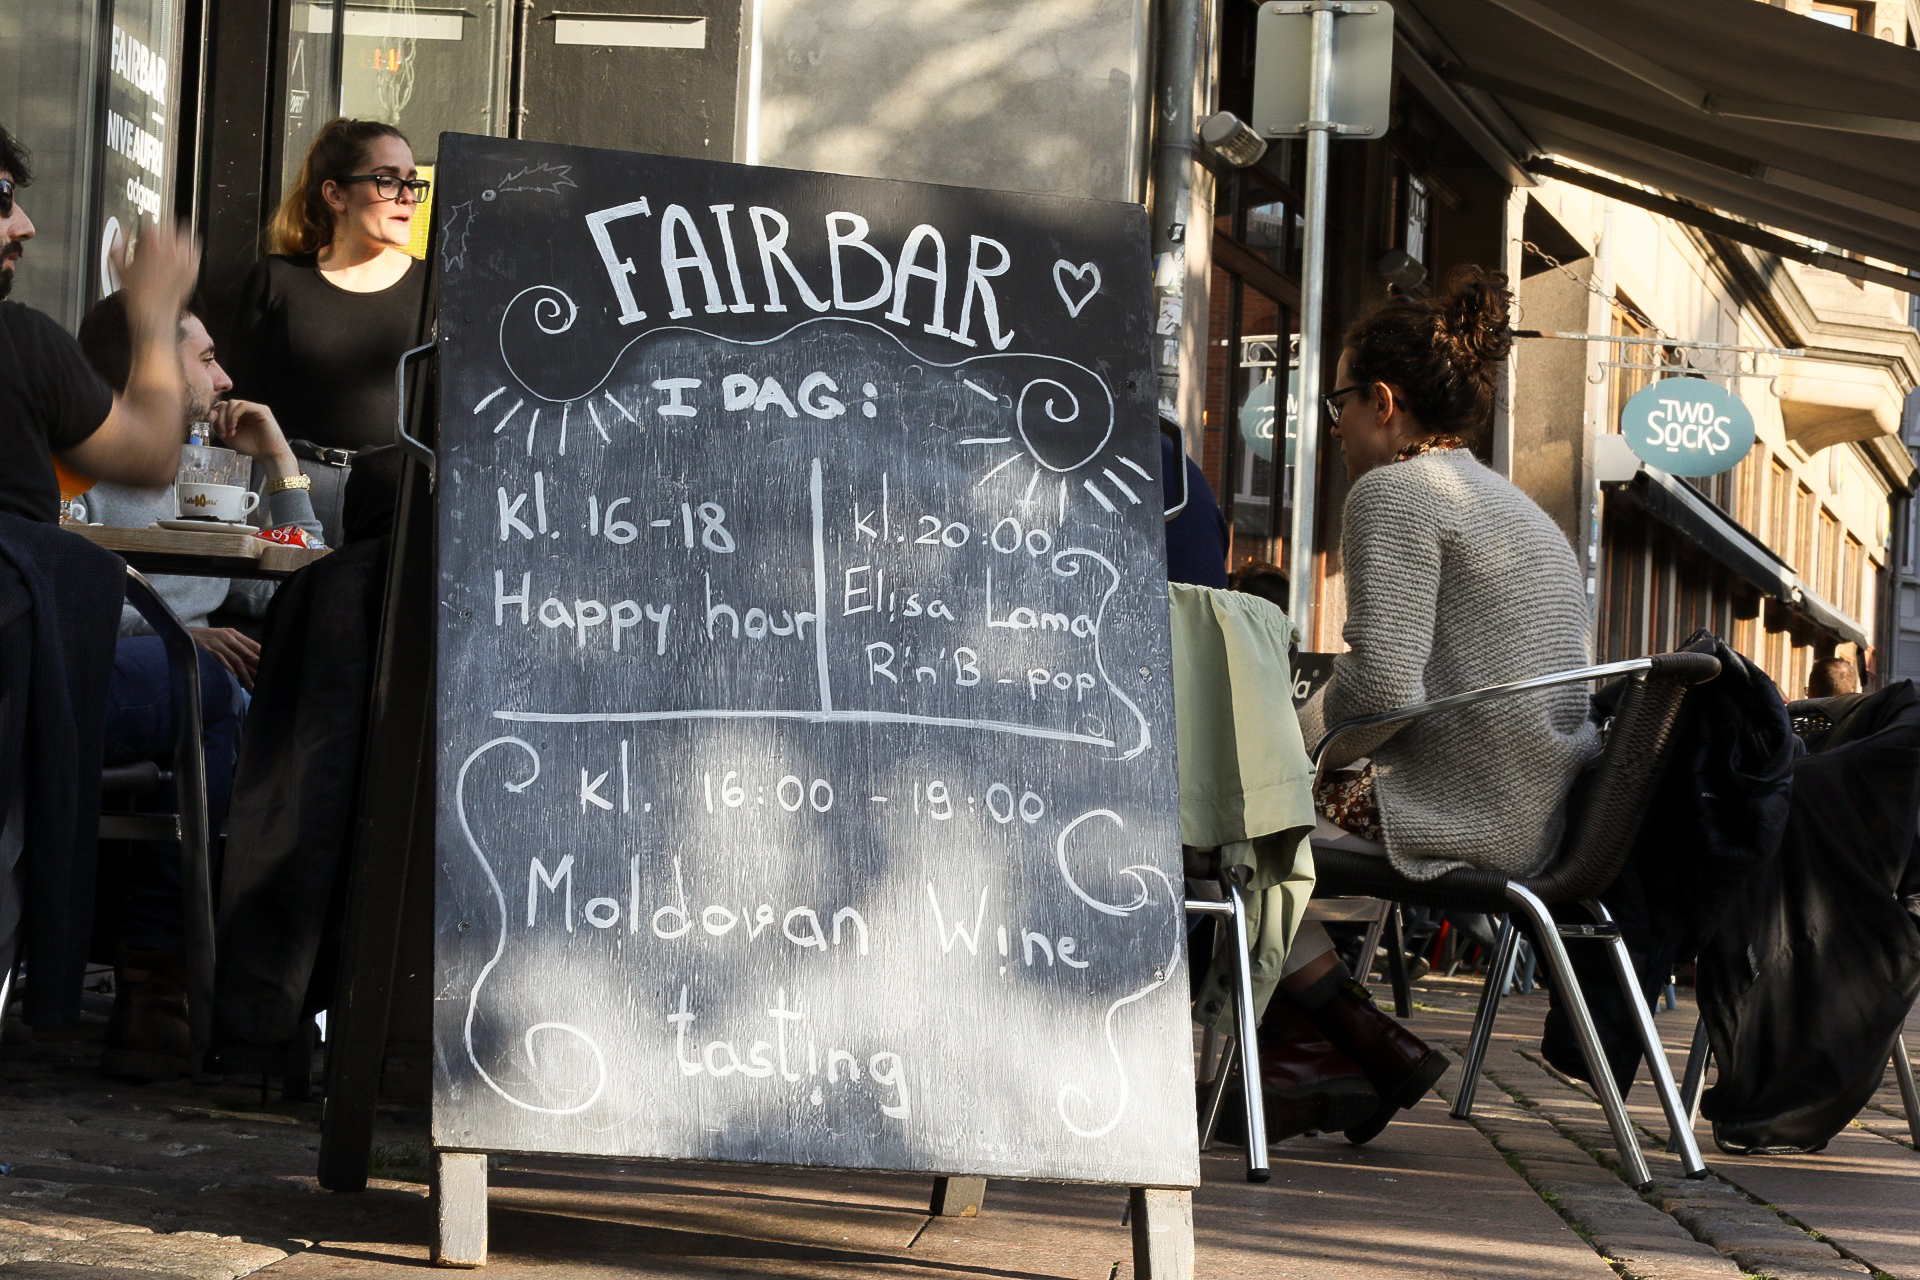 FAIRBAR
NIVEAUFRI
adgang
FAIRBAR
I DAG:
Kl. 16-18
Happy hour
Kl. 20:00
Elisa Lama
R'n'B - pop
Kl. 16:00 - 19:00
Moldovan Wine
tasting
TWO
SOCKS